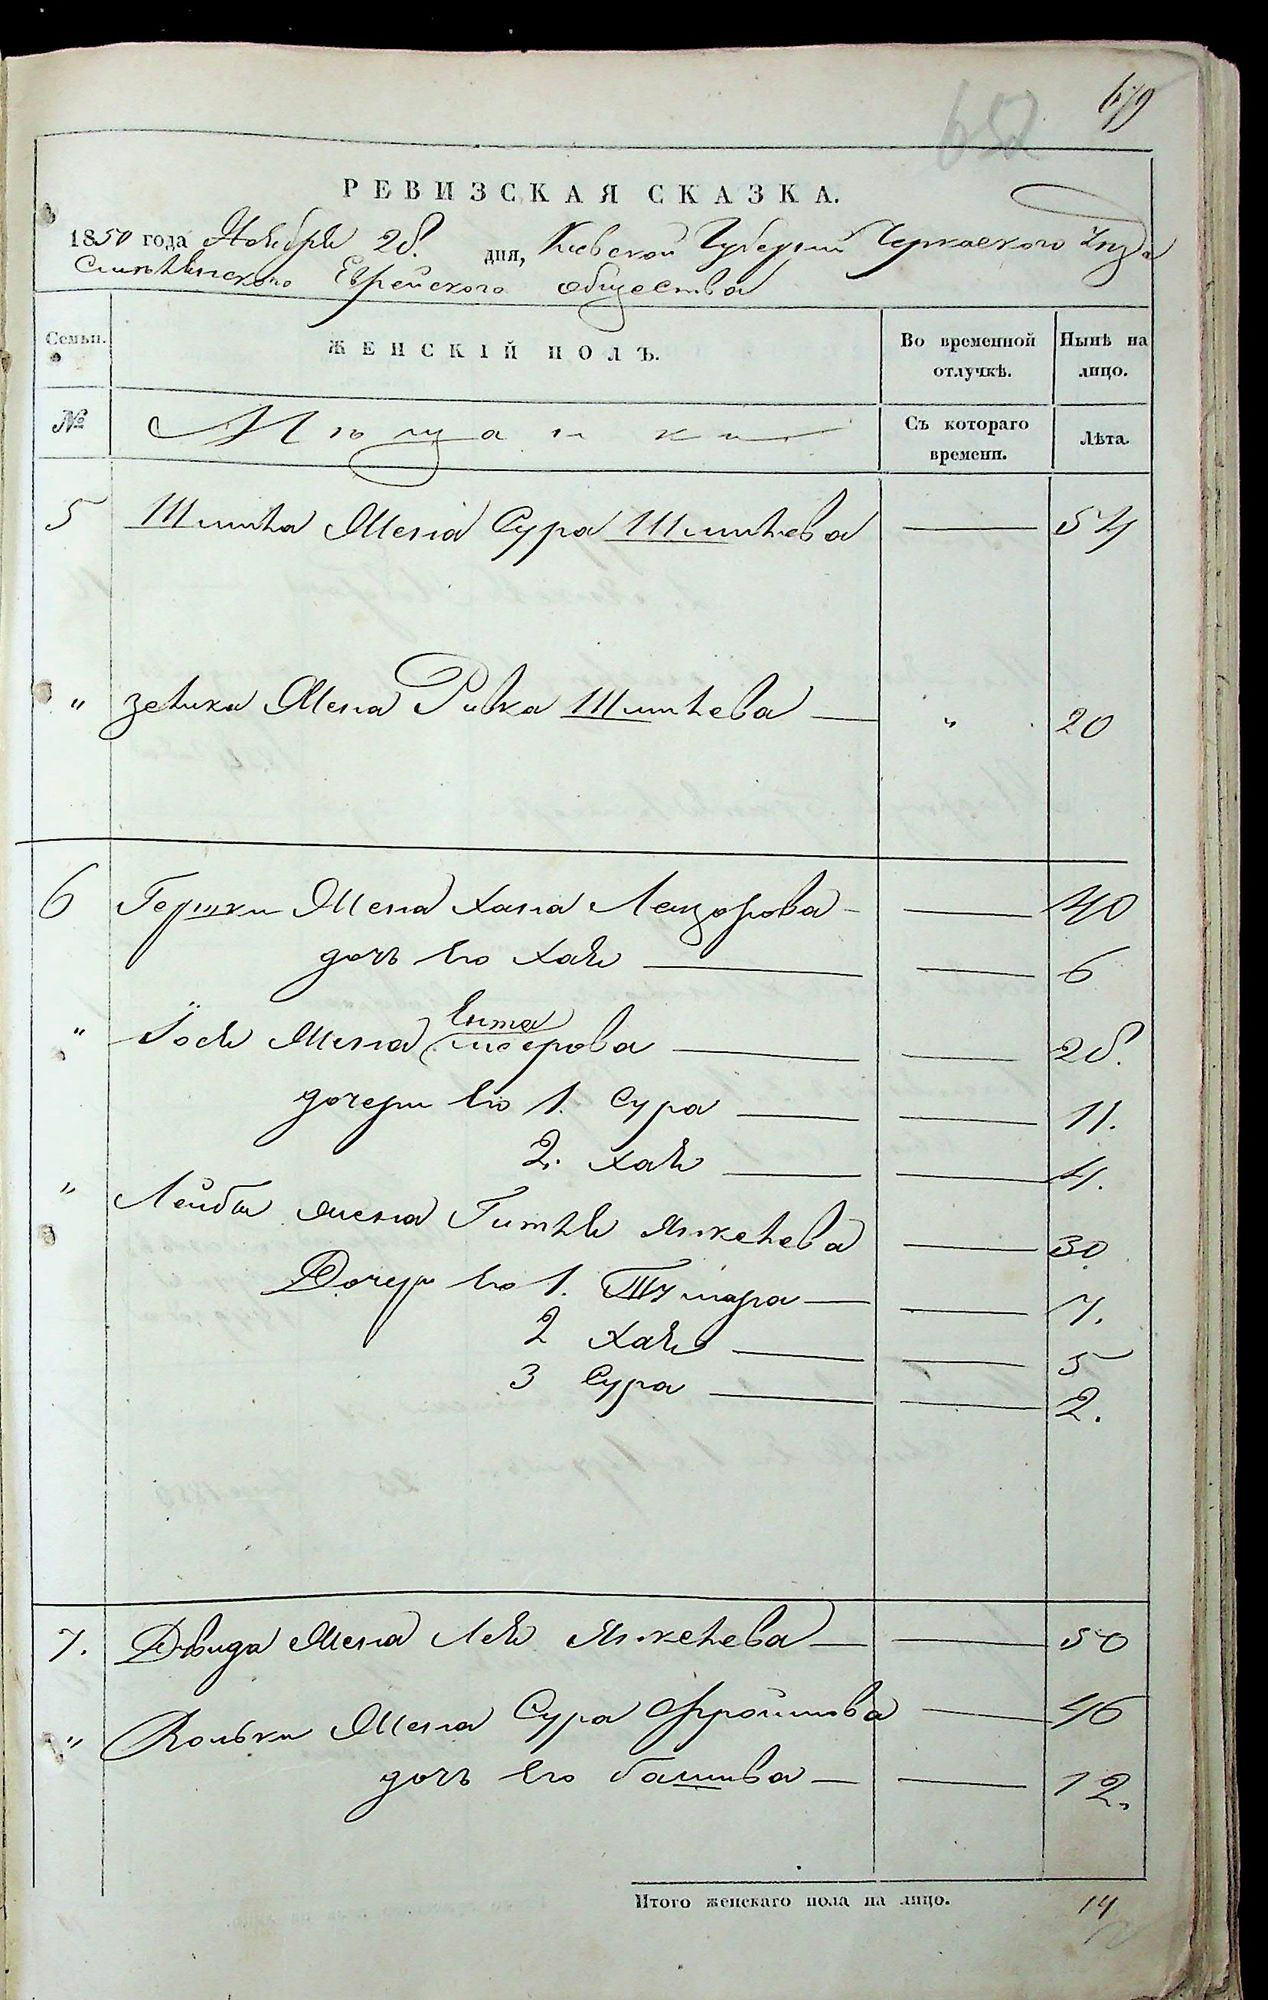 679
652
РЕВИЗСКАЯ СКАЗКА.
1850 года Ноября 28. дня, Киевской Губернии Черкаского Уезда
Смелянского Еврейского общества
Семьи. ЖЕНСКІЙ ПОЛЪ. Во временной отлучкѣ. Нынѣ на лицо.
№ Мѣщанки Съ котораго времени. Лѣта.
5 Жена Сура 54
" жена Ривка " 20
6 Гершки жена Хана Лейзорова 40
дочь Его Хая 6
" Іося жена Ента Меерова 28.
дочери Его 1. Сура 11.
2. Хая 4.
" Лейбы жена Гитля Янкелева 30
Дочери Его 1. 7.
2 Хая 5
3 Сура 2.
7. Давида жена Лея Янкелева 50
" Вольки жена Сура Фроимова 46
дочь Его Башива 12.
Итого женскаго пола на лицо. 14